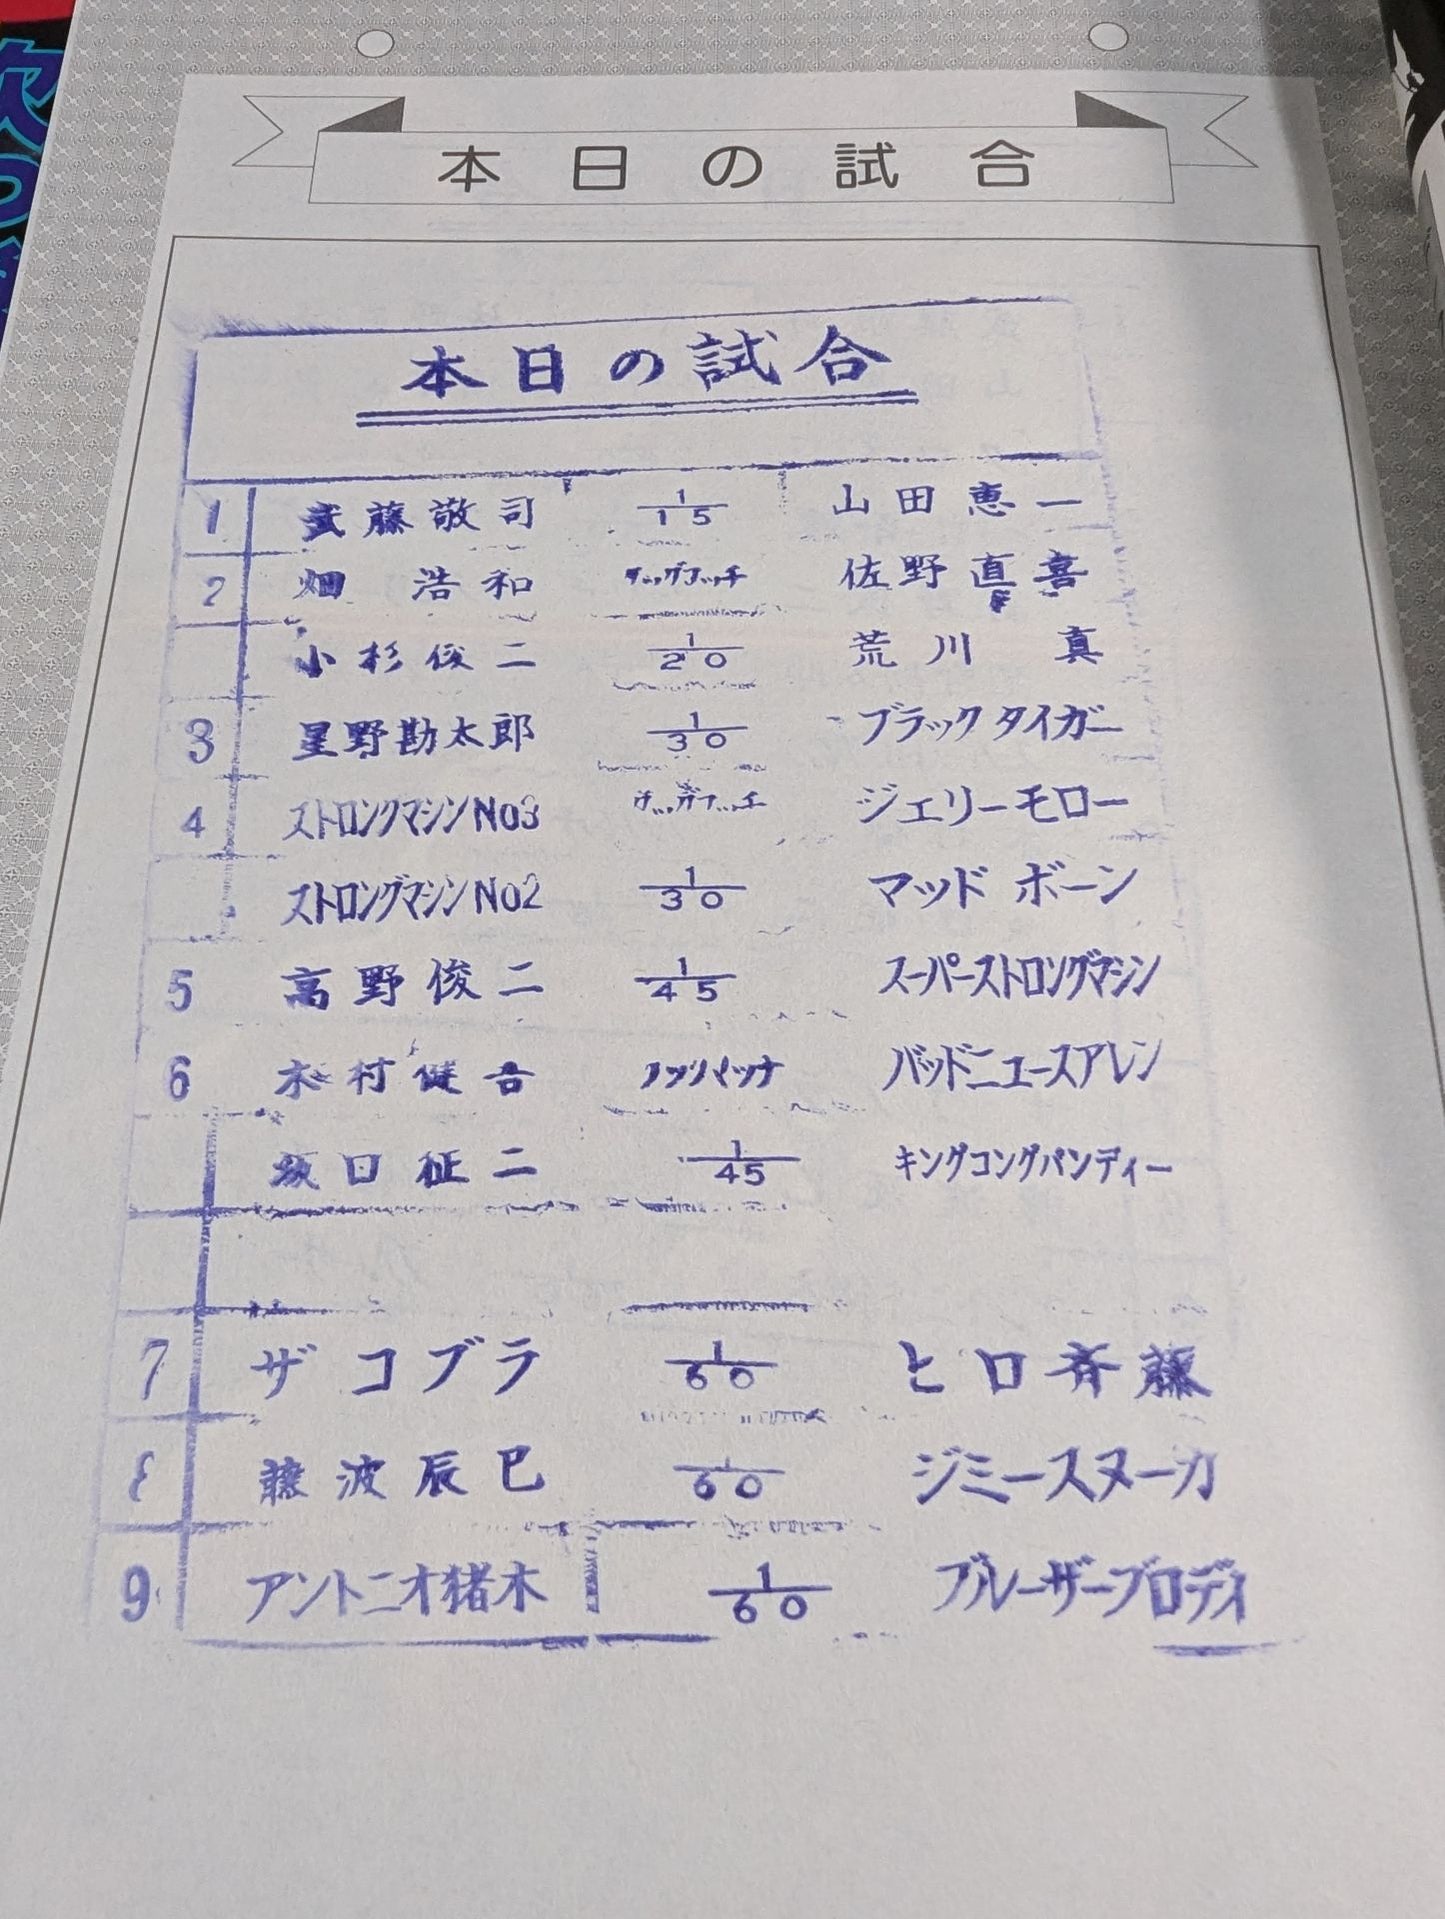 本日の試合
本日の試合
1 武藤敬司 1/15 山田恵一
2 畑 浩和 タッグマッチ 佐野直喜
小杉俊二 1/20 荒川 真
3 星野勘太郎 1/30 ブラックタイガー
4 ストロングマシンNo3 タッグマッチ ジェリーモロー
ストロングマシンNo2 1/30 マッド ボーン
5 高野俊二 1/45 スーパーストロングマシン
6 木村健吾 バッドニュースアレン
坂口征二 1/45 キングコングバンディー
7 ザコブラ 1/60 ヒロ斉藤
8 藤波辰巳 1/60 ジミースヌーカ
9 アントニオ猪木 1/60 ブルーザーブロディ